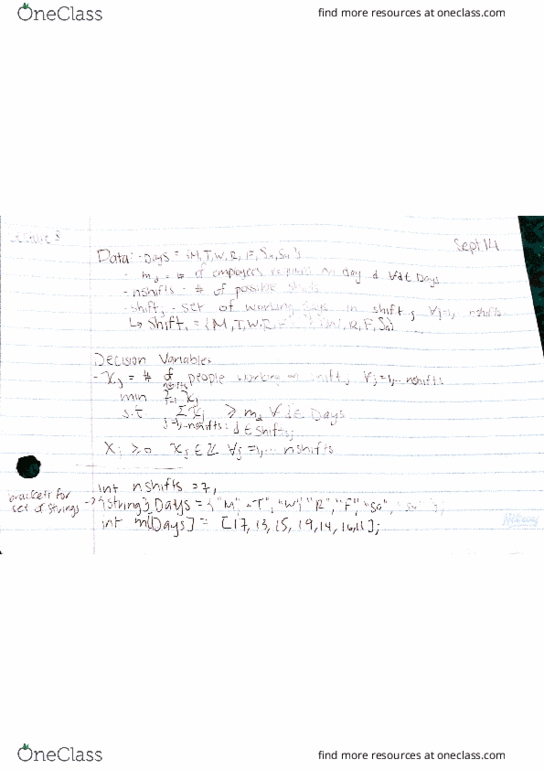 OneClass
find more resources at oneclass.com
Lecture 8
Sept 14
Data: - Days = {M,T,W,R,F,Sa,Su}
- m_d = # of employees required on day d ∀d∈ Days
- nshifts - # of possible shifts
- shift_j - set of working days in shift j ∀j=1, nshifts
↳ shift, = {M,T,W,R, W, R, F, Sa}
Decision Variables
- X_j = # of people working on shift j ∀j=1,... nshifts
min Σ_{j=1}^{nshifts} X_j
s.t. Σ X_j ≥ m_d ∀ d ∈ Days
j=1,..nshifts: d ∈ shift_j
X_j ≥ 0 X_j ∈ ℤ ∀j =1,... nshifts
int nshifts = 7;
brackets for
set of strings
→ {string} Days = {"M", "T", "W", "R", "F", "Sa", "Su"};
int m[Days] = [17, 13, 15, 19, 14, 16, 11];
OneClass
find more resources at oneclass.com